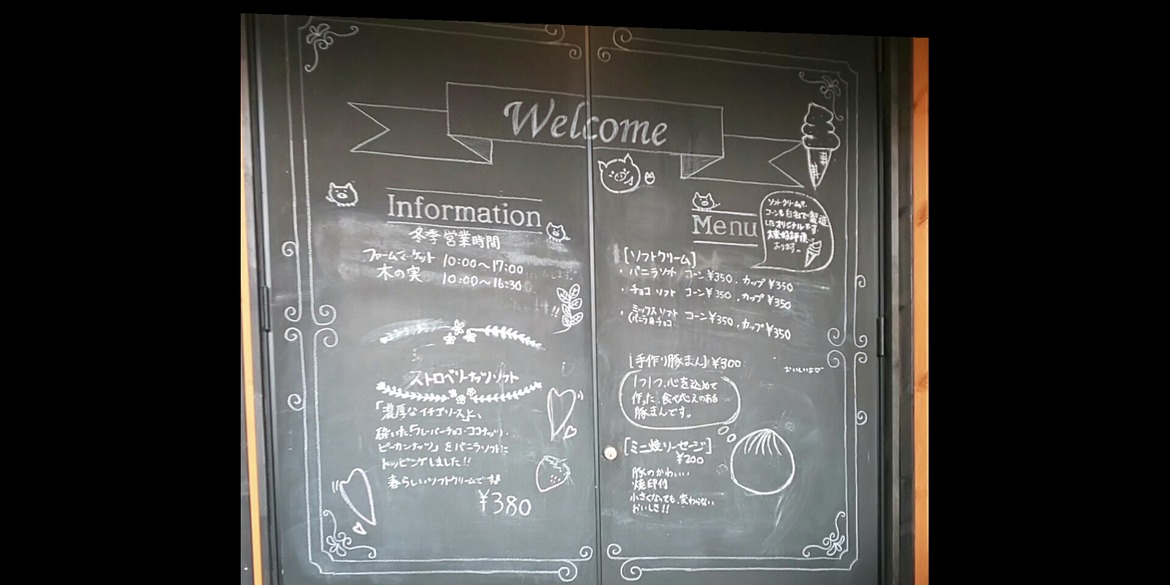 Welcome
Information
冬季営業時間
ファームマーケット 10:00〜17:00
木の実 10:00〜16:30
ストロベリーナッツソフト
「濃厚なイチゴソースと、
砕いた「クレーバーチョコ・ココナッツ・
ピーカンナッツ」をバニラソフトに
トッピングしました!!
春らしいソフトクリームです
¥380
Menu
ソフトクリームも
コーンも自社で製造
したオリジナルです
大変好評頂いて
おります
[ソフトクリーム]
・バニラソフト コーン¥350、カップ¥350
・チョコソフト コーン¥350、カップ¥350
・ミックスソフト コーン¥350、カップ¥350
(バニラ&チョコ)
[手作り豚まん]¥300
おいしいよ♡
1つ1つ、心を込めて
作った、食べ応えのある
豚まんです。
[ミニ焼ソーセージ]
¥200
豚のかわいい
焼印付
小さくなっても、変わらない
おいしさ!!